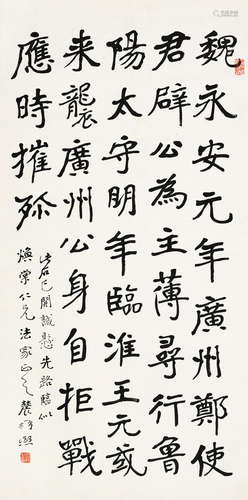 魏永安元年廣州鄭使
君辟公為主薄尋行魯
陽太守明年臨淮王元彧
来襲廣州公身自拒戰
應時摧殄
此石已開誠懸先路臨似
仁兄法家正之